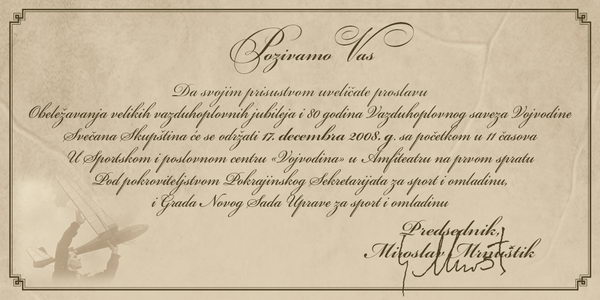 Pozivamo Vas
Da svojim prisustvom uveličate proslavu
Obeležavanja velikih vazduhoplovnih jubileja i 80 godina Vazduhoplovnog saveza Vojvodine
Svečana Skupština će se održati 17. decembra 2008. g. sa početkom u 11 časova
U Sportskom i poslovnom centru «Vojvodina» u Amfiteatru na prvom spratu
Pod pokroviteljstvom Pokrajinskog Sekretarijata za sport i omladinu,
i Grada Novog Sada Uprave za sport i omladinu
Predsednik,
Miroslav